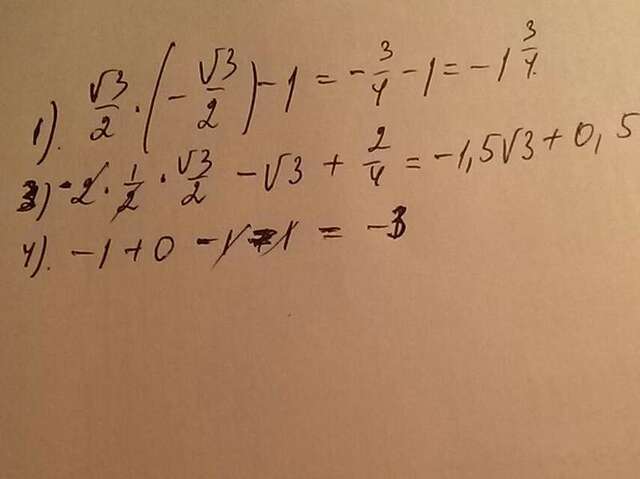 1). √3/2 · (-√3/2) - 1 = -3/4 - 1 = -1 3/4
3) -2 · 1/2 · √3/2 - √3 + 2/4 = -1,5√3 + 0,5
4). -1 + 0 = -3